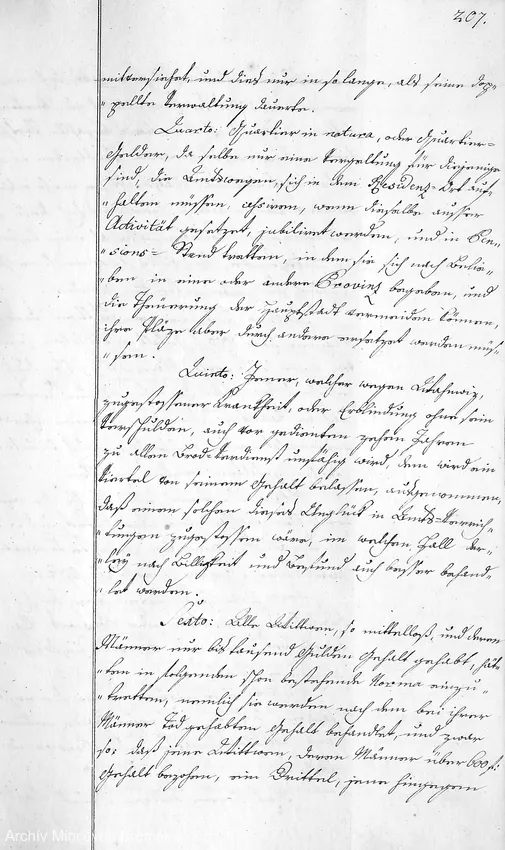 207.
mitversiehet, und dies nur in so lange, als seine dop-
-pellte Verwaltung dauerte.
Quarto: Quartier in natura, oder Quartier-
Gelder, da selbe nur eine Vergeltung für diejenige
sind, die Amtswegen, sich in dem Residenz-Ort auf-
-halten müssen, cessiren, wenn dieselbe ausser
Activität gesetzet, jubiliret werden, und in Pen-
-sions-Stand tretten, in dem sie sich nach Belie-
-ben in eine oder andere Provinz begeben, und
die Theuerung der Hauptstadt vermeiden können,
ihre Pläze aber durch andere ersetzet werden müs-
-sen.
Quinto: Jener, welcher wegen Wahnwiz,
zugestossener Krankheit, oder Erblindung ohne sein
Verschulden, auch vor gedienten zehen Jahren
zu allen Brod-Verdienst unfähig wird, dem wird ein
Viertel von seinem Gehalt belassen, ausgenommen,
daß einem solchen dieses Unglück in Amts-Verrich-
-tungen zugestossen wäre, in welchen Fall der-
-ley nach Billigkeit und Befund auch besser behand-
-let werden.
Sexto: Alle Wittwen, so mittelloß, und deren
Männer nur bis tausend Gulden Gehalt gehabt, hät-
-ten in folgenden schon bestehende Norma einzu-
-tretten, nemlich sie werden nach dem bei ihrer
Männer Tod gehabten Gehalt behandlet, und zwar
so: daß jene Wittwen, deren Männer über 600 fl:
Gehalt bezohen, ein Drittel, jene hingegen
Archiv Mincovny Kremnica